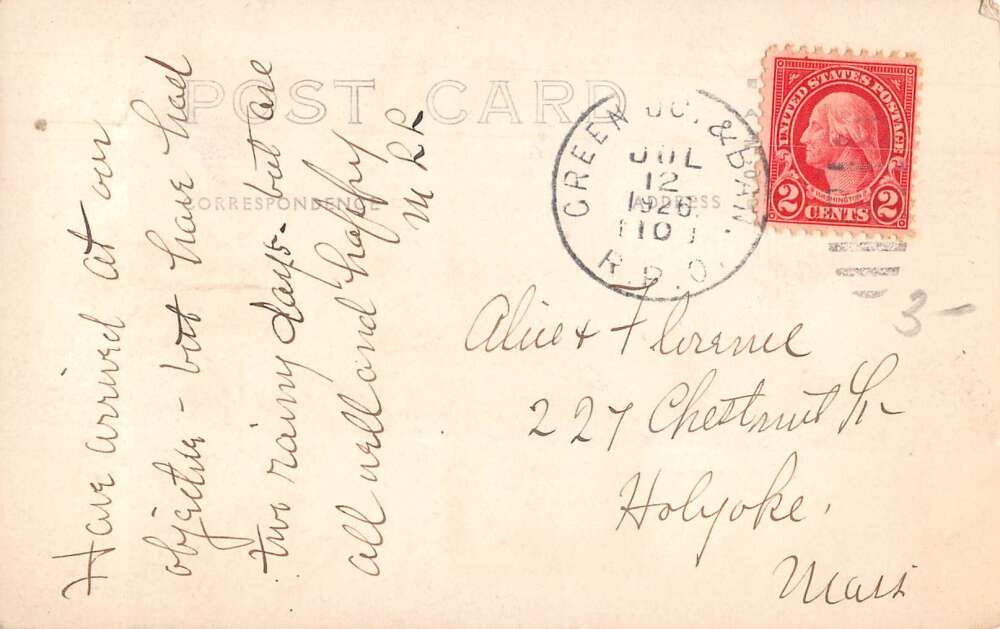 POST CARD
CORRESPONDENCE
ADDRESS
Have arrived at our
objective - but have had
two rainy days - but are
all well and happy
M R R
GREEN JC. & BAN.
JUL
12
1926
R.P.O.
UNITED STATES POSTAGE
WASHINGTON
2 CENTS 2
Alice + Florence
227 Chestnut St-
Holyoke.
Mass
3-